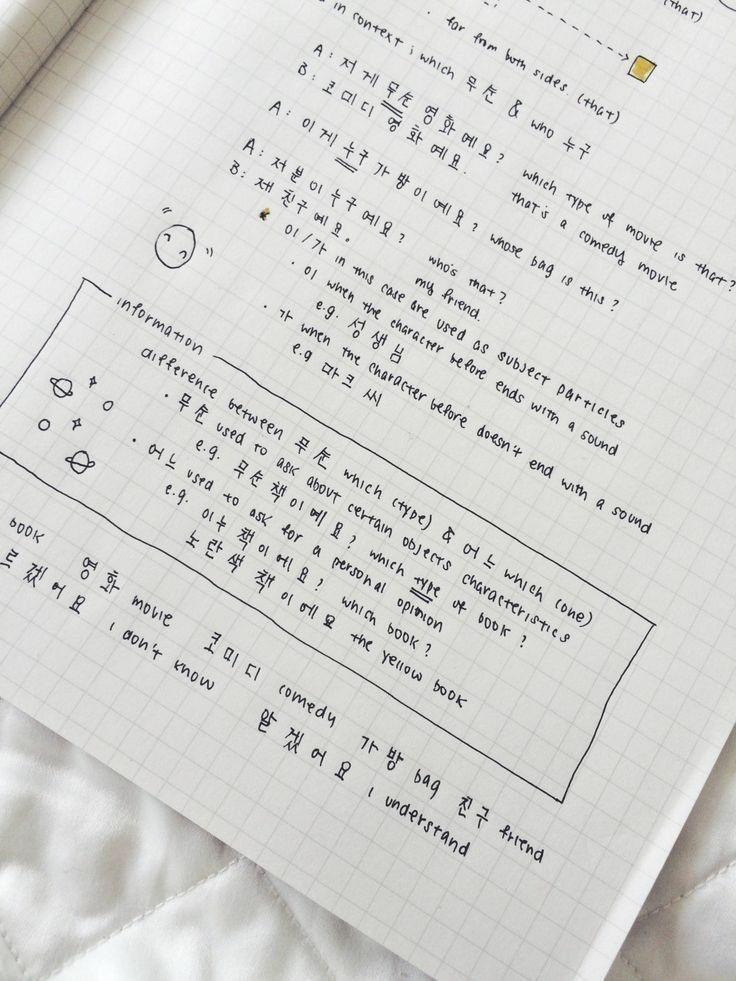 (that)
. far from both sides (that)
in context ; which 무슨 & who 누구
A : 저게 무슨 영화예요? which type of movie is that?
B : 코미디 영화예요. that's a comedy movie
A : 이게 누구 가방이예요? whose bag is this?
A : 저분이 누구예요? who's that?
B : 재 친구예요. my friend.
이/가 in this case are used as subject particles
· 이 when the character before ends with a sound
e.g. 성생님
· 가 when the character before doesn't end with a sound
e.g 마크 씨
information
difference between 무슨 which (type) & 어느 which (one)
· 무슨 used to ask about certain objects characteristics
e.g. 무슨 책이예요? which type of book?
· 어느 used to ask for a personal opinion
e.g. 이누 책이에요? which book?
노란색 책이에요 the yellow book
book 영화 movie 코미디 comedy 가방 bag 친구 friend
르겠어요 i don't know 알겠어요 i understand